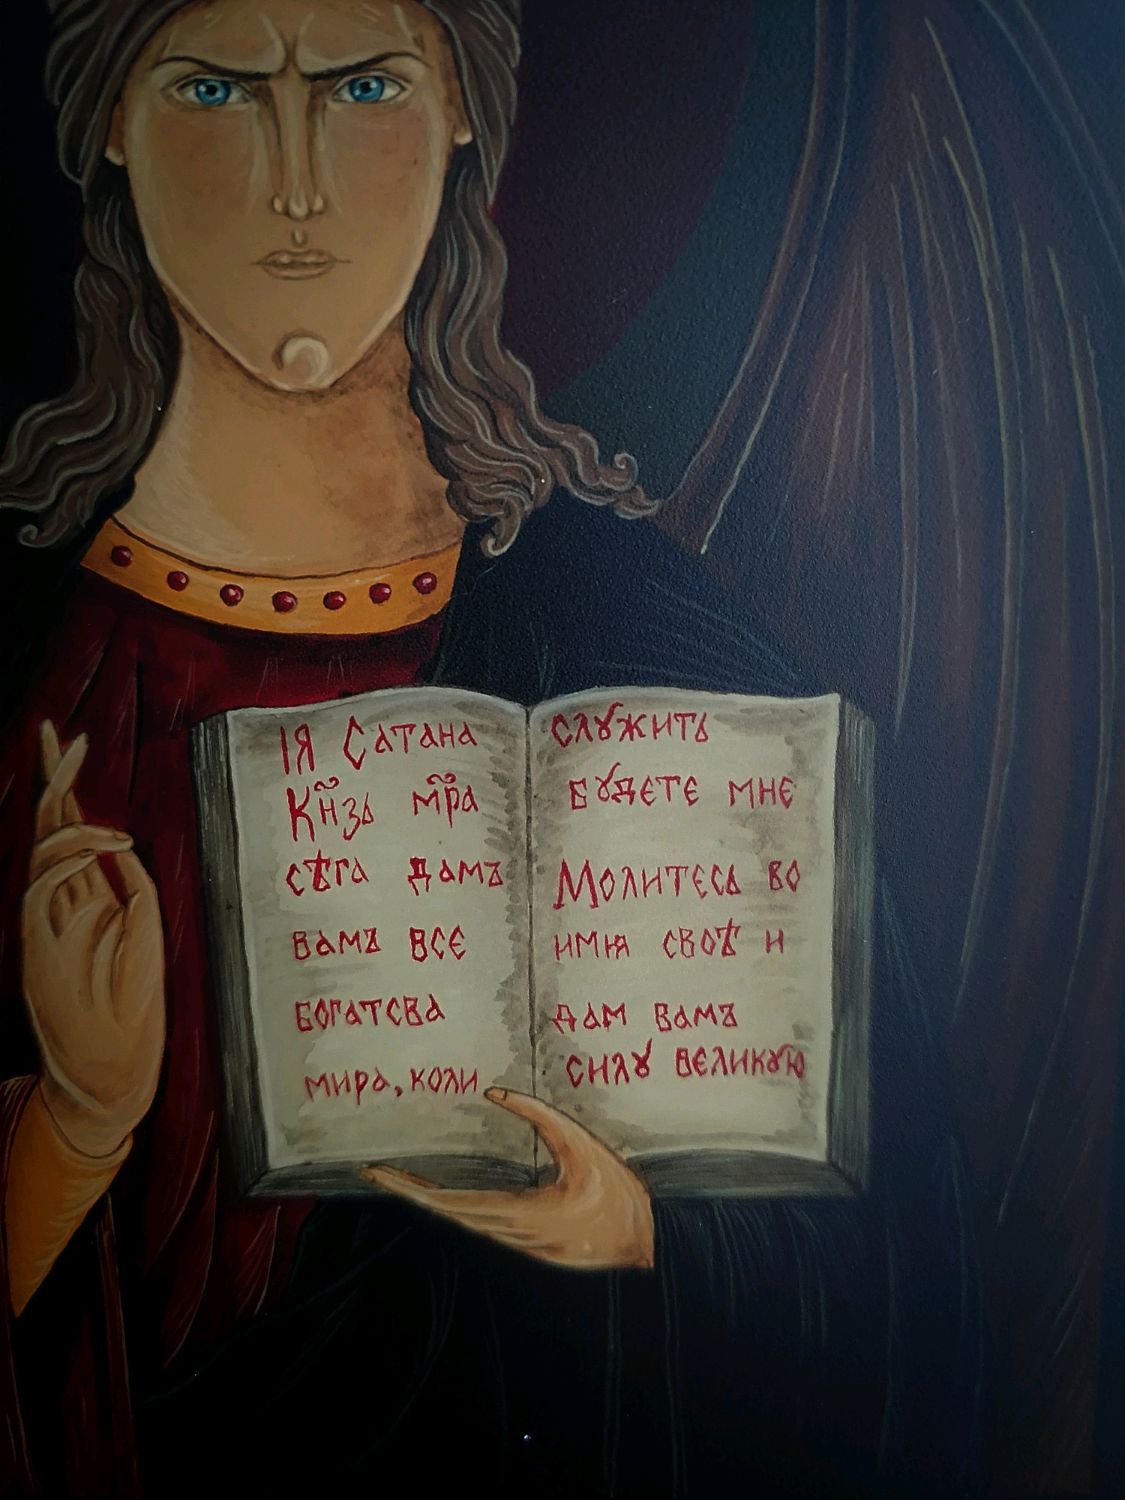 ІЯ Сатана
Кн҃зь мр҃а
сѣга дамъ
вамъ все
богатсва
мира, коли
слꙋжить
бꙋдете мне
Молитесь во
имıя своѣ и
дам вамъ
силꙋ великꙋю